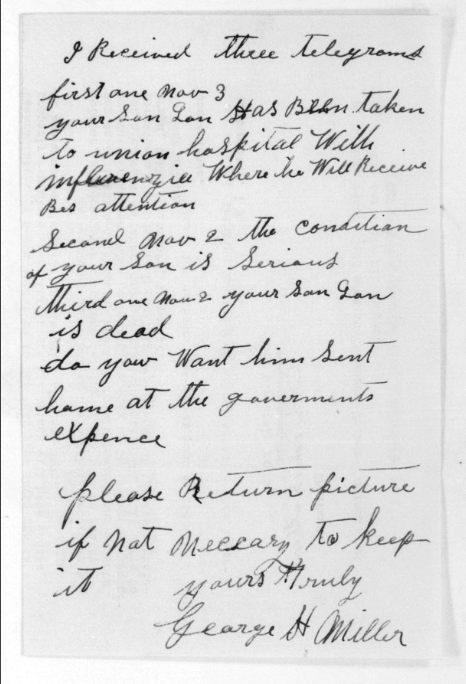 I Received three telegrams
first one Nov 3
your Son Lon Has Been taken
to union hospital With
influenzia Where he Will Receive
Bes attention
Second Nov 2 the condition
of your Son is Serious
third one Nov 2 your Son Lon
is dead
do your Want him Sent
home at the goverments
expence
please Return picture
if not neccary to keep
it yours Truly
George H Miller